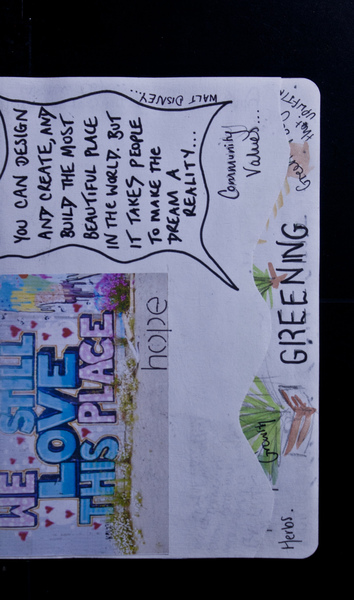 YOU CAN DESIGN
AND CREATE, AND
BUILD THE MOST
BEAUTIFUL PLACE
IN THE WORLD. BUT
IT TAKES PEOPLE
TO MAKE THE
DREAM A
REALITY...
WALT DISNEY...
Community
Values...
WE STILL
LOVE
THIS PLACE
hope
GREENING
Growth
Herbs.